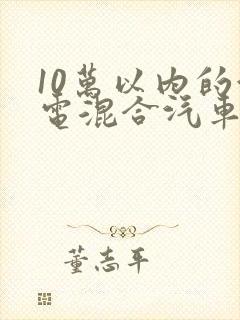 10萬以内的
電混合汽車
董志平